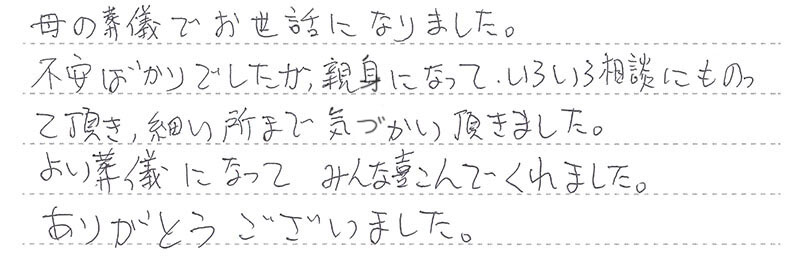 母の葬儀でお世話になりました。
不安ばかりでしたが、親身になって、いろいろ相談にものっ
て頂き、細い所まで気づかい頂きました。
よい葬儀になって みんな喜こんでくれました。
ありがとうございました。